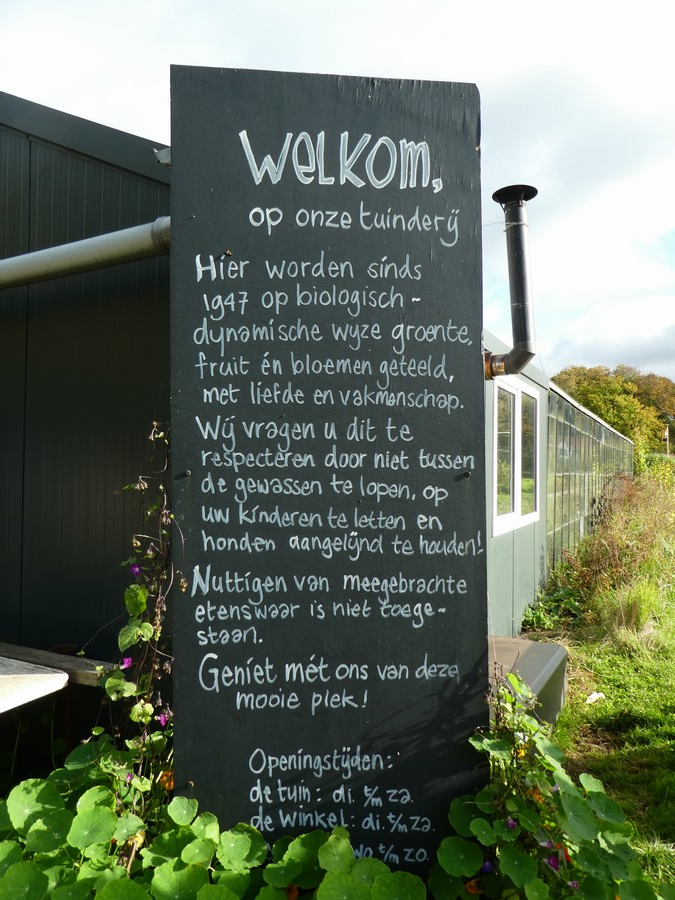 WELKOM,
op onze tuinderij
Hier worden sinds
1947 op biologisch-
dynamische wyze groente,
fruit én bloemen geteeld,
met liefde en vakmanschap.
Wij vragen u dit te
respecteren door niet tussen
de gewassen te lopen, op
uw kinderen te letten en
honden aangelijnd te houden!
Nuttigen van meegebrachte
etenswaar is niet toege-
staan.
Geniet mét ons van deze
mooie plek!
Openingstijden:
de tuin: di. t/m za.
de winkel: di. t/m za.
t/m zo.